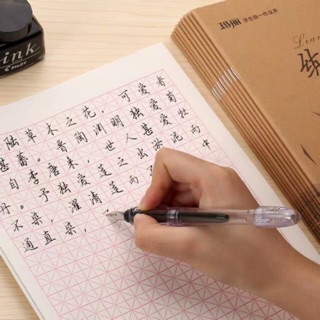 ink
PILOT
玛丽 学生统一作业本
Lian
练
陆草木之花，可爱者
甚蕃。晋陶渊明独爱菊
自李唐来，世人甚爱牡
丹。予独爱莲之出淤泥而
不染，濯清涟而
通直，